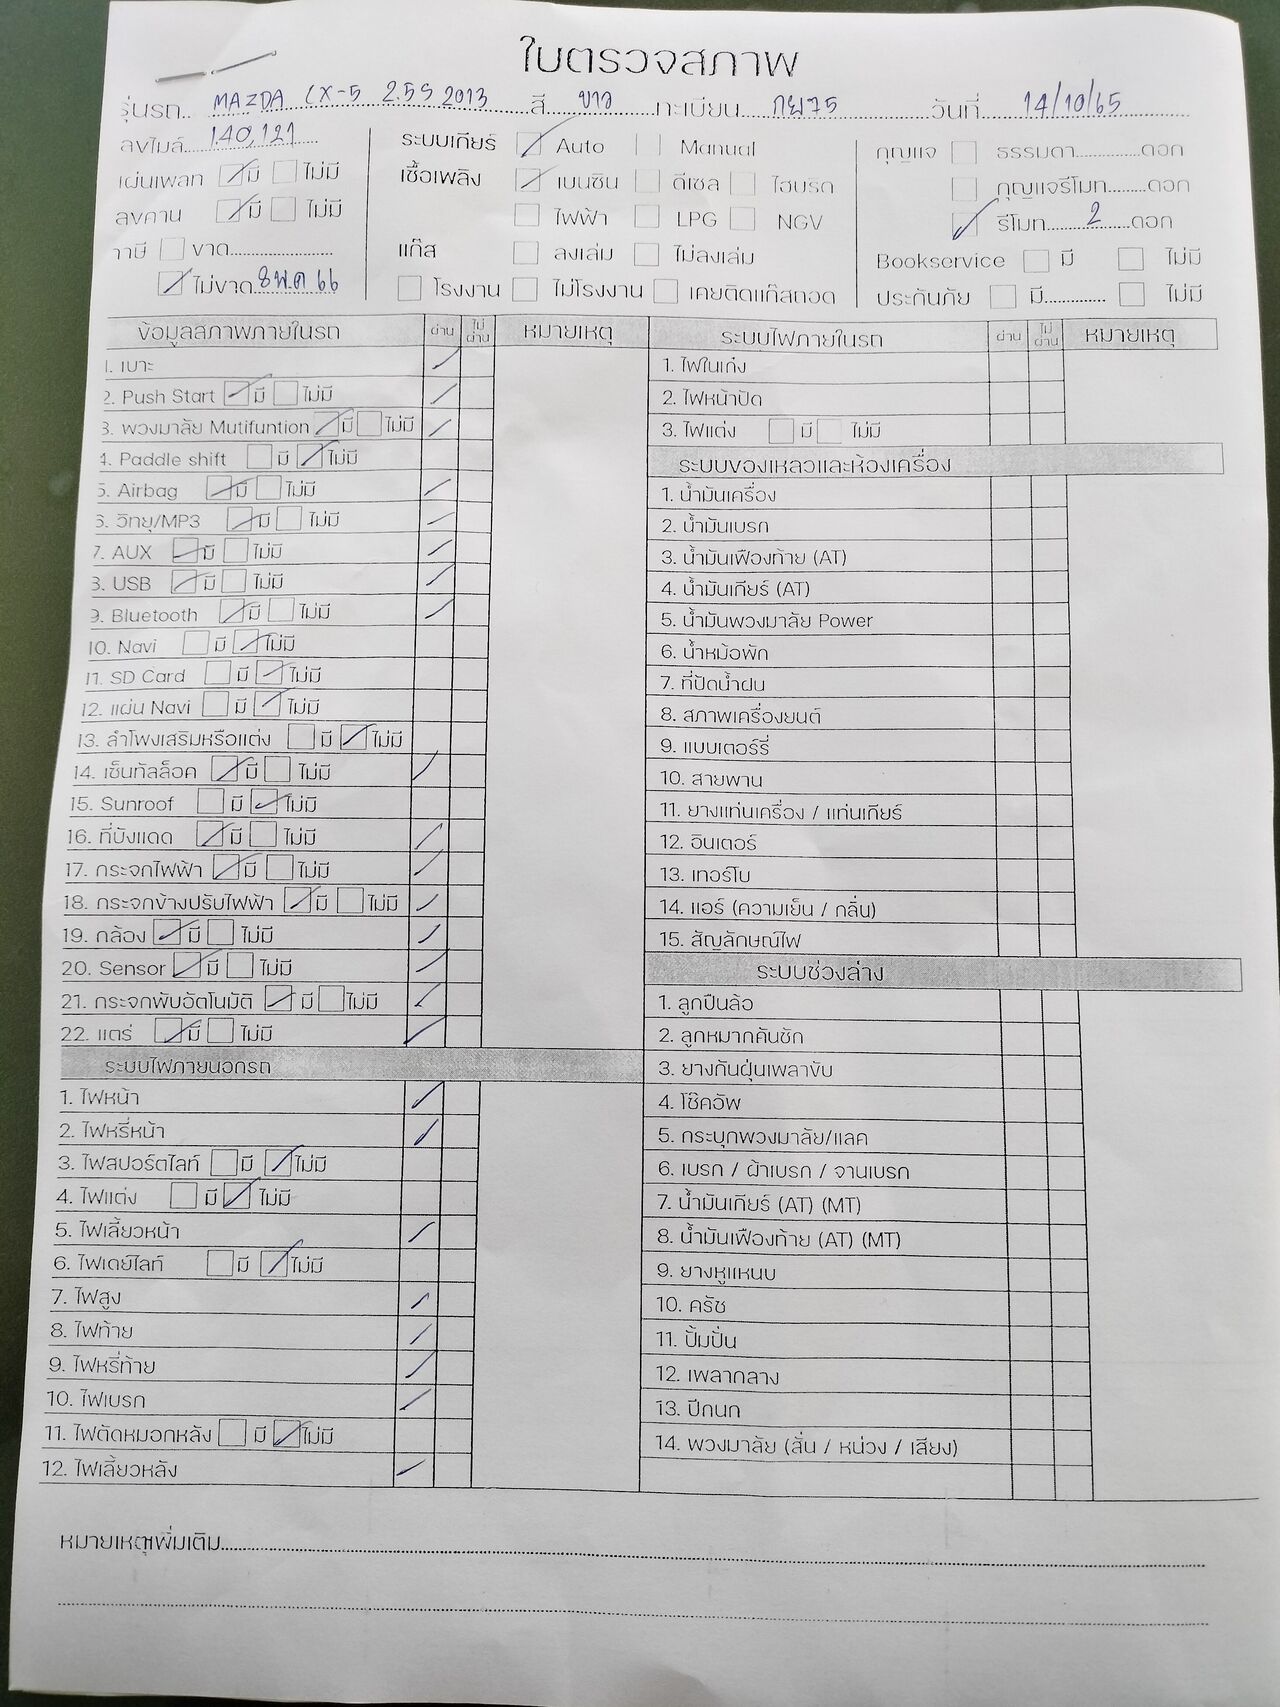 ใบตรวจสภาพ
รุ่นรถ MAZDA CX-5 2.5S 2013 สี ขาว ทะเบียน วันที่ 14/10/65
ลงไมล์ 140,121
แผ่นเพลท มี ไม่มี
ลงคาน มี ไม่มี
ภาษี ขาด
ไม่ขาด 8 พ.ค 66
ระบบเกียร์ Auto Manual
เชื้อเพลิง เบนซิน ดีเซล ไฮบริด
ไฟฟ้า LPG NGV
แก๊ส ลงเล่ม ไม่ลงเล่ม
โรงงาน ไม่โรงงาน เคยติดแก๊สถอด
กุญแจ ธรรมดา ดอก
กุญแจรีโมท ดอก
รีโมท 2 ดอก
Bookservice มี ไม่มี
ประกันภัย มี ไม่มี
ข้อมูลสภาพภายในรถ ผ่าน ไม่ผ่าน หมายเหตุ
1. เบาะ
2. Push Start มี ไม่มี
3. พวงมาลัย Mutifuntion มี ไม่มี
4. Paddle shift มี ไม่มี
5. Airbag มี ไม่มี
6. วิทยุ/MP3 มี ไม่มี
7. AUX มี ไม่มี
8. USB มี ไม่มี
9. Bluetooth มี ไม่มี
10. Navi มี ไม่มี
11. SD Card มี ไม่มี
12. แผ่น Navi มี ไม่มี
13. ลำโพงเสริมหรือแต่ง มี ไม่มี
14. เซ็นทัลล็อค มี ไม่มี
15. Sunroof มี ไม่มี
16. ที่บังแดด มี ไม่มี
17. กระจกไฟฟ้า มี ไม่มี
18. กระจกข้างปรับไฟฟ้า มี ไม่มี
19. กล้อง มี ไม่มี
20. Sensor มี ไม่มี
21. กระจกพับอัตโนมัติ มี ไม่มี
22. แตร์ มี ไม่มี
ระบบไฟภายนอกรถ
1. ไฟหน้า
2. ไฟหรี่หน้า
3. ไฟสปอร์ตไลท์ มี ไม่มี
4. ไฟแต่ง มี ไม่มี
5. ไฟเลี้ยวหน้า
6. ไฟเดย์ไลท์ มี ไม่มี
7. ไฟสูง
8. ไฟท้าย
9. ไฟหรี่ท้าย
10. ไฟเบรก
11. ไฟตัดหมอกหลัง มี ไม่มี
12. ไฟเลี้ยวหลัง
ระบบไฟภายในรถ ผ่าน ไม่ผ่าน หมายเหตุ
1. ไฟในเก๋ง
2. ไฟหน้าปัด
3. ไฟแต่ง มี ไม่มี
ระบบของเหลวและห้องเครื่อง
1. น้ำมันเครื่อง
2. น้ำมันเบรก
3. น้ำมันเฟืองท้าย (AT)
4. น้ำมันเกียร์ (AT)
5. น้ำมันพวงมาลัย Power
6. น้ำหม้อพัก
7. ที่ปัดน้ำฝน
8. สภาพเครื่องยนต์
9. แบบเตอร์รี่
10. สายพาน
11. ยางแท่นเครื่อง / แท่นเกียร์
12. อินเตอร์
13. เทอร์โบ
14. แอร์ (ความเย็น / กลิ่น)
15. สัญลักษณ์ไฟ
ระบบช่วงล่าง
1. ลูกปืนล้อ
2. ลูกหมากคันชัก
3. ยางกันฝุ่นเพลาขับ
4. โช๊คอัพ
5. กระบุกพวงมาลัย/แลค
6. เบรก / ผ้าเบรก / จานเบรก
7. น้ำมันเกียร์ (AT) (MT)
8. น้ำมันเฟืองท้าย (AT) (MT)
9. ยางหูแหนบ
10. ครัช
11. ปั้มปั่น
12. เพลากลาง
13. ปีกนก
14. พวงมาลัย (สั่น / หน่วง / เสียง)
หมายเหตุเพิ่มเติม